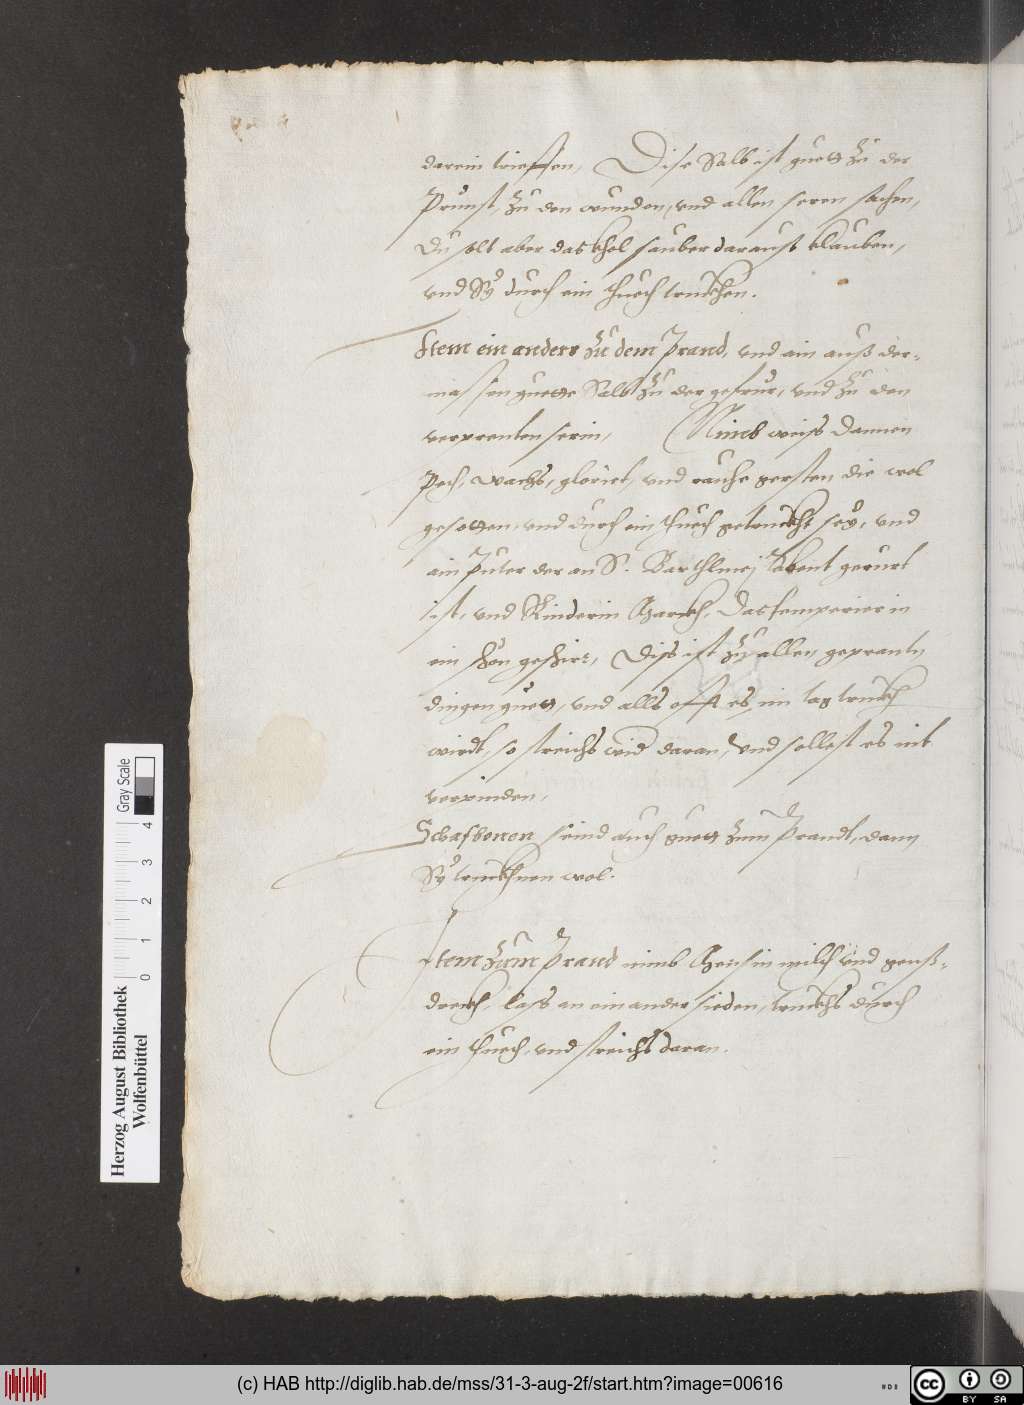 darein trieffen, Dise Salb ist guett zu der
Prunst, zu den wunden, und allen seren sachen,
Du solt aber das khol sauber daraus klauben,
und Sÿ durch ein thuech truckhen.
Item ein anders zu dem Prand, und ain auß der-
massen guette Salb zu der gefrur, und zu den
verprenten serin, Nimb weiss Dannen
Pech, wachs, gloriet, und rauhe gersten die wol
gesotten, und durch ein thuech getruckht seÿ, und
ain Puter der an S. Barthlmej Abent gerurt
ist, und Kinderin Harckh, Das temperier in
ein schon geschier, Diss ist zu allen geprantn
dingen guett, und alls offt es im tag truckh
wirdt, so streichs wid daran, und sollest es nit
verpinden,
Schafbonen seind auch guett zum Prandt, dann
Sÿ truckhnen wol.
Item zum Prand nimb milch und genß-
dreckh, lass an einander sieden, truckhs durch
ein thuech, und streichs daran.
Herzog August Bibliothek
Wolfenbüttel
0 1 2 3 4
Gray Scale
(c) HAB http://diglib.hab.de/mss/31-3-aug-2f/start.htm?image=00616
cc BY SA